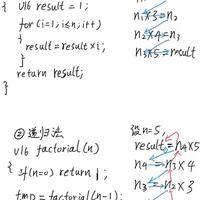 { U16 result = 1;
for(i=1;i≤n;i++)
{ result=result×i;
}
return result;
}
n₁×3=n₂
n₂×4=n₃
n₃×5=result
②递归法
U16 factorial(n)
{ if(n=0) return 1;
tmp=factorial(n-1);
设n=5,
result=n₄×5
n₄=n₃×4
n₃=n₂×3